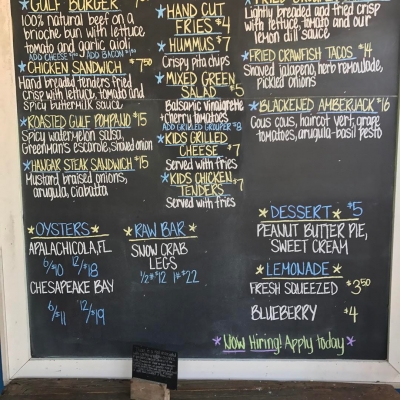 GULF BURGER
100% natural beef on a
brioche bun with lettuce
tomato and garlic aioli
CHICKEN SANDWICH $7.50
Hand breaded tenders fried
crisp with lettuce, tomato and
spicy buttermilk sauce
ROASTED GULF POMPANO $15
Spicy watermelon salsa,
Greenman's escarole, shaved onion
HANGAR STEAK SANDWICH $15
Mustard braised onions,
arugula, ciabatta
HAND CUT
FRIES $4
HUMMUS $7
Crispy pita chips
MIXED GREEN
SALAD $5
Balsamic vinaigrette
+cherry tomatoes
ADD GRILLED GROUPER $8
KIDS GRILLED
CHEESE $7
Served with fries
KIDS CHICKEN
TENDERS $7
Served with fries
Lightly breaded and fried crisp
with lettuce, tomato and our
lemon dill sauce
FRIED CRAWFISH TACOS $4
Shaved jalapeno, herb remoulade,
pickled onions
BLACKENED AMBERJACK $16
Cous cous, haircot vert, grape
tomatoes, arugula-basil pesto
OYSTERS
APALACHICOLA, FL
6/$10 12/$18
CHESAPEAKE BAY
6/$11 12/$19
RAW BAR
SNOW CRAB
LEGS
1/2# $12 1# $22
DESSERT $5
PEANUT BUTTER PIE,
SWEET CREAM
LEMONADE
FRESH SQUEEZED $3.50
BLUEBERRY $4
Now Hiring! Apply today